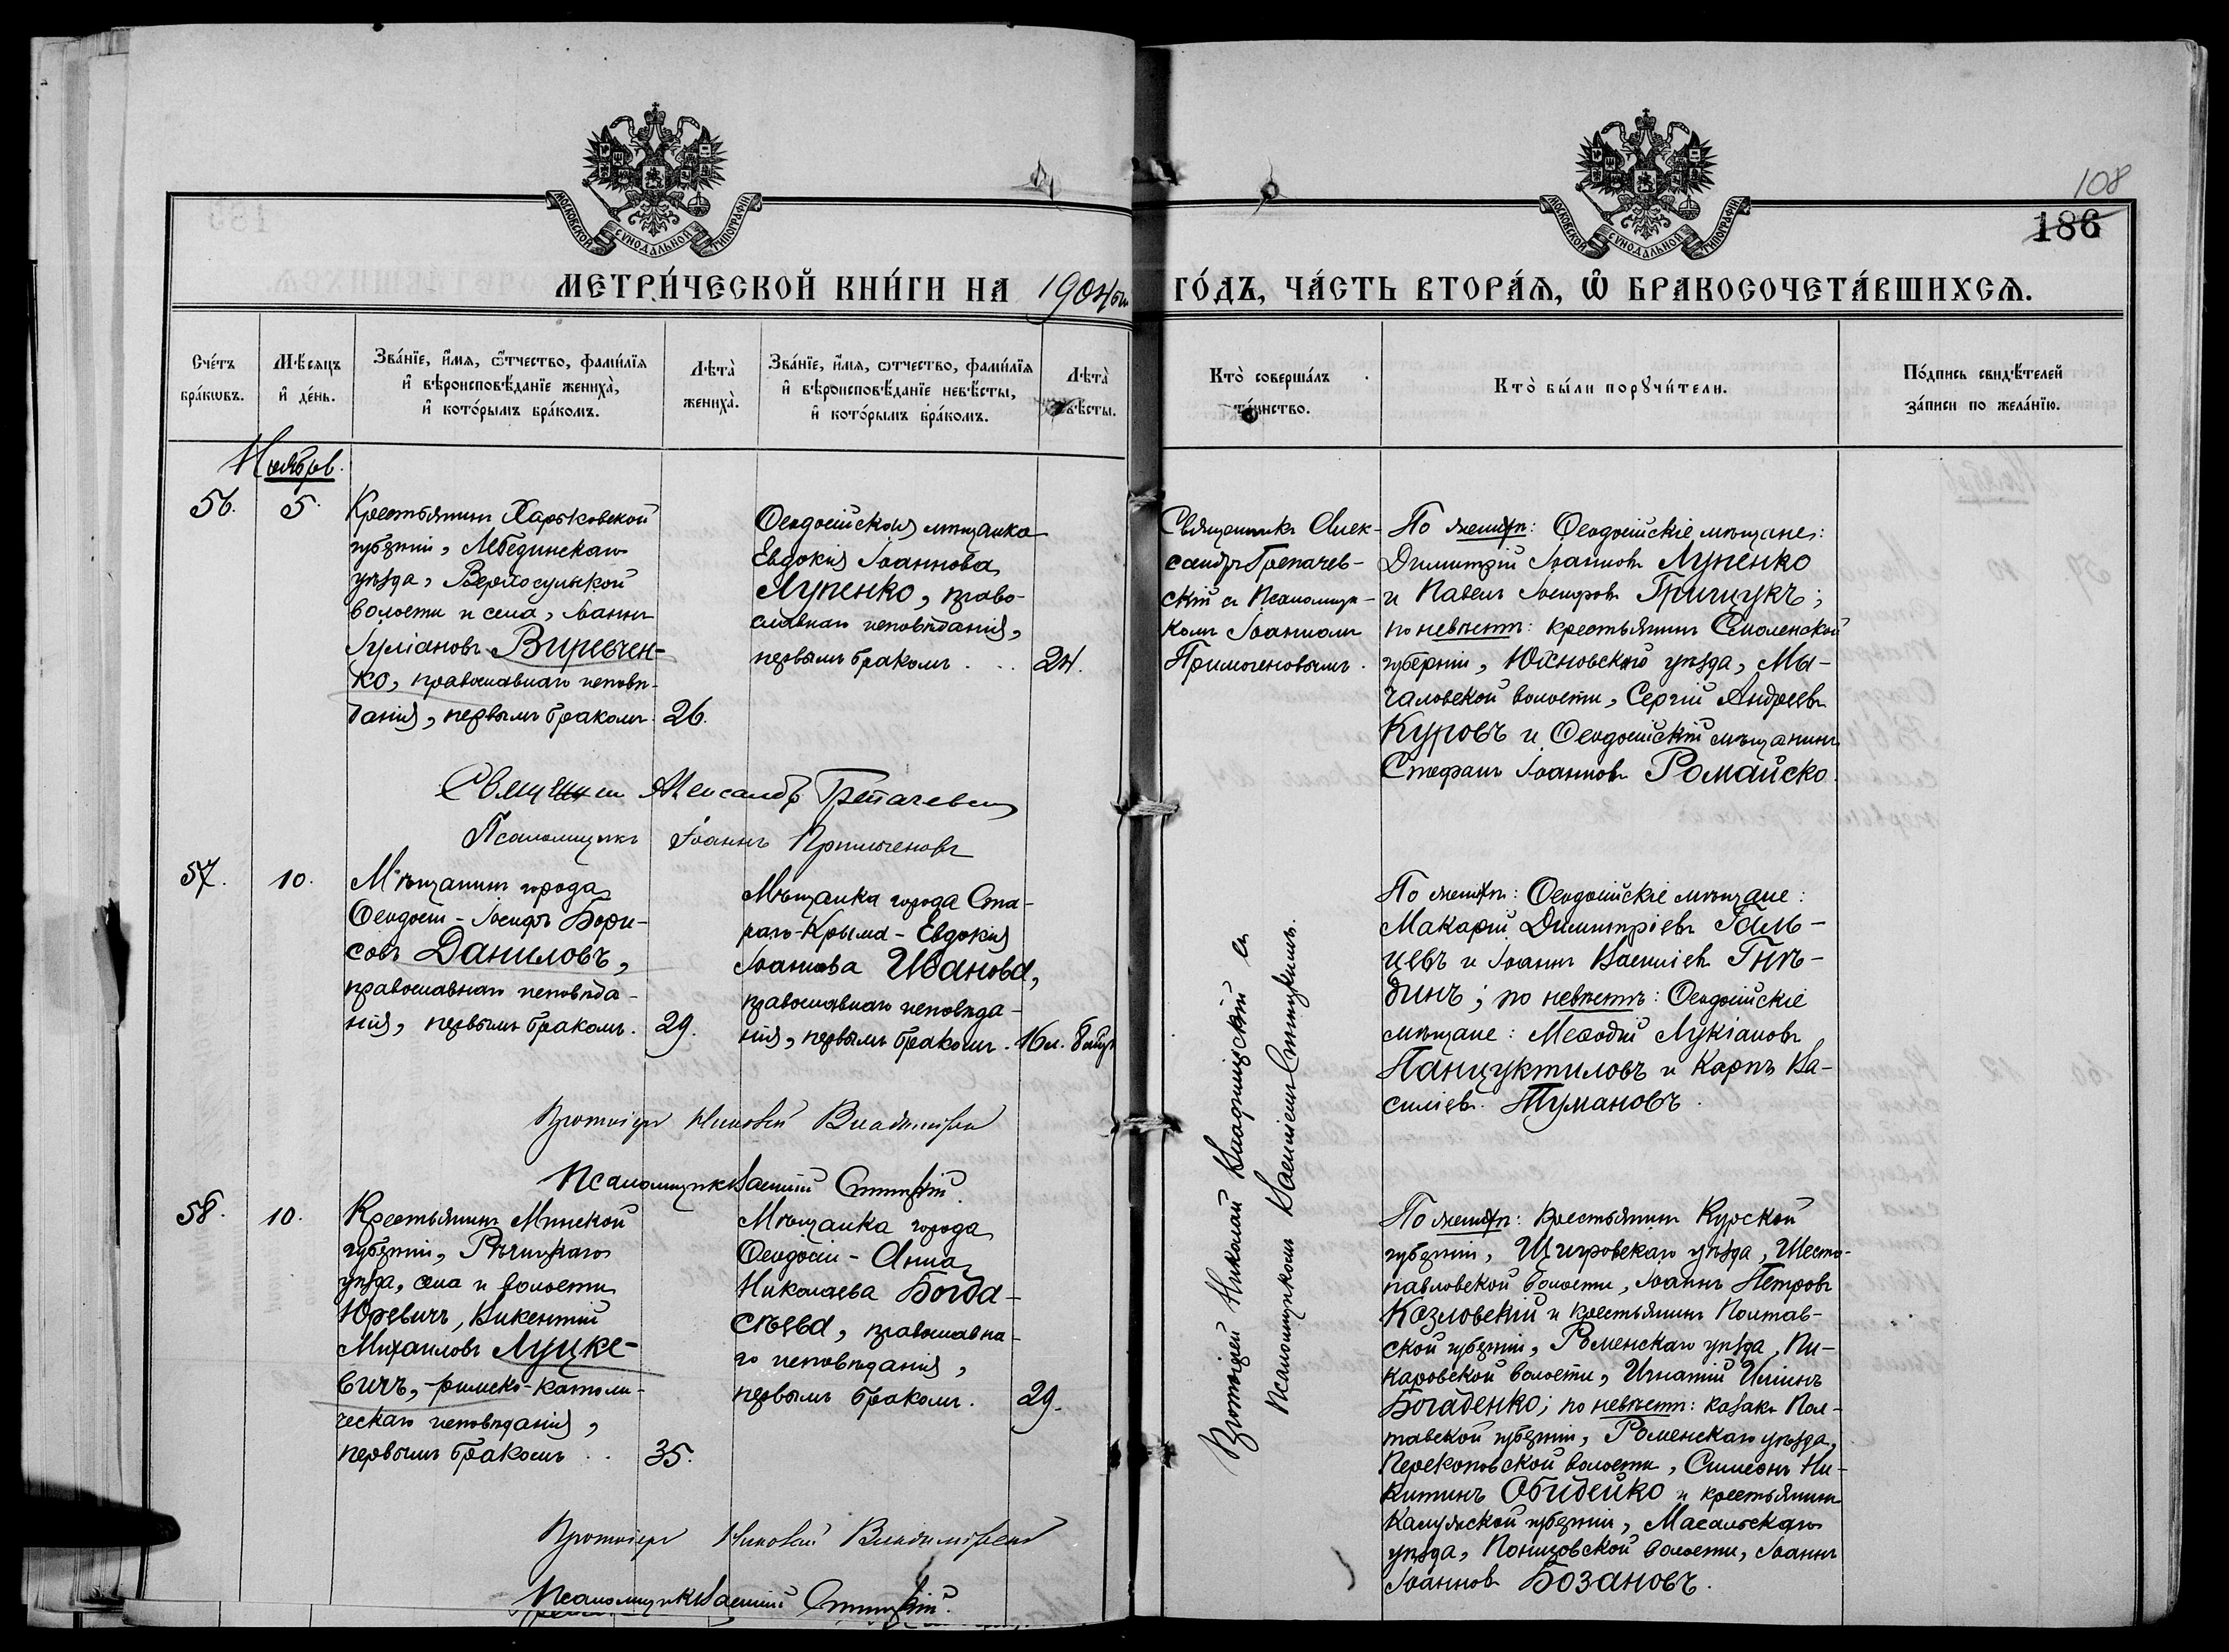 108
186
МОСКОВСКОЙ СУНОДАЛЬНОЙ ТИПОГРАФІИ
МОСКОВСКОЙ СУНОДАЛЬНОЙ ТИПОГРАФІИ
МЕТРИ́ЧЕСКОЙ КНИ́ГИ НА 1904ый ГО́ДЪ, ЧА́СТЬ ВТОРА́Ѧ, Ѽ БРАКОСОЧЕТА́ВШИХСѦ.
Сче́тъ бра́кѡвъ.
Мѣ́сяцъ и҆ де́нь.
Зва́нїе, и҆́мѧ, ѻ҆́тчество, фами́лїѧ
и҆ вѣроисповѣ́данїе жениха̀,
и҆ кото́рымъ бра́комъ.
Лѣта̀ жениха̀.
Зва́нїе, и҆́мѧ, ѻ҆́тчество, фами́лїѧ
и҆ вѣроисповѣ́данїе невѣ́сты,
и҆ кото́рымъ бра́комъ.
Лѣта̀ невѣ́сты.
Кто̀ соверша́лъ та́инство.
Кто̀ бы́ли порꙋчи́тели.
По́дпись свидѣ́телей
за́писи по жела́нїю.
Ноябрь.
56.
5.
Крестьянинъ Харьковской
губерніи, Лебединскаго
уѣзда, Верхосульской
волости и села, Іоаннъ
Іуліановъ Виревчен-
ко, православнаго исповѣ-
данія, первымъ бракомъ.
26.
Ѳеодосійская мѣщанка
Евдокія Іоаннова
Лупенко, право-
славнаго исповѣданія,
первымъ бракомъ . . .
24.
Священникъ Алек-
сандръ Грепачев-
скій съ Псаломщи-
комъ Іоанномъ
Примогеновымъ.
По женихѣ: Ѳеодосійскіе мѣщане:
Димитрій Іоанновъ Лупенко
и Павелъ Іосифовъ Грищукъ;
по невѣстѣ: крестьянинъ Смоленской
губерніи, Юхновскаго уѣзда, Мы-
чаловской волости, Сергій Андреевъ
Куровъ и Ѳеодосійскій мѣщанинъ
Стефанъ Іоанновъ Романско.
Священникъ Александръ Грепачевскій
Псаломщикъ Іоаннъ Примогеновъ
57.
10.
Мѣщанинъ города
Ѳеодосіи - Іосифъ Бори-
совъ Даниловъ,
православнаго исповѣда-
нія, первымъ бракомъ.
29.
Мѣщанка города Ста-
раго-Крыма - Евдокія
Іоаннова Иванова,
православнаго исповѣда-
нія, первымъ бракомъ.
16 л. 8 мѣс.
Протоіерей Николай Владимірскій съ
Псаломщикомъ Василіемъ
По женихѣ: Ѳеодосійскіе мѣщане:
Макарій Димитріевъ Галь-
цевъ и Іоаннъ Василіевъ Гнѣ-
динъ; по невѣстѣ: Ѳеодосійскіе
мѣщане: Меѳодій Лукіановъ
Панцуктиловъ и Карпъ Ва-
силіевъ Тумановъ.
Протоіерей Николай Владимірскій
Псаломщикъ Василій
58.
10.
Крестьянинъ Минской
губерніи, Рѣчицкаго
уѣзда, села и волости
Юревичъ, Викентій
Михаиловъ Луцке-
вичъ, - римско-католи-
ческаго исповѣданія,
первымъ бракомъ . .
35.
Мѣщанка города
Ѳеодосіи - Анна
Николаева Богда-
сѣева, православна-
го исповѣданія,
первымъ бракомъ.
29.
По женихѣ: Крестьянинъ Курской
губерніи, Щигровскаго уѣзда, Шесто-
павловской волости, Іоаннъ Петровъ
Козловскій и крестьянинъ Полтав-
ской губерніи, Роменскаго уѣзда, Пи-
каровской волости, Игнатій Иліинъ
Богаденко; по невѣстѣ: казакъ Пол-
тавской губерніи, Роменскаго уѣзда,
Перекоповской волости, Симеонъ Ни-
китинъ Обидейко и крестьянинъ
Калужской губерніи, Масальскаго
уѣзда, Понизовской волости, Іоаннъ
Іоанновъ Бозановъ.
Протоіерей Николай Владимірскій
Псаломщикъ Василій